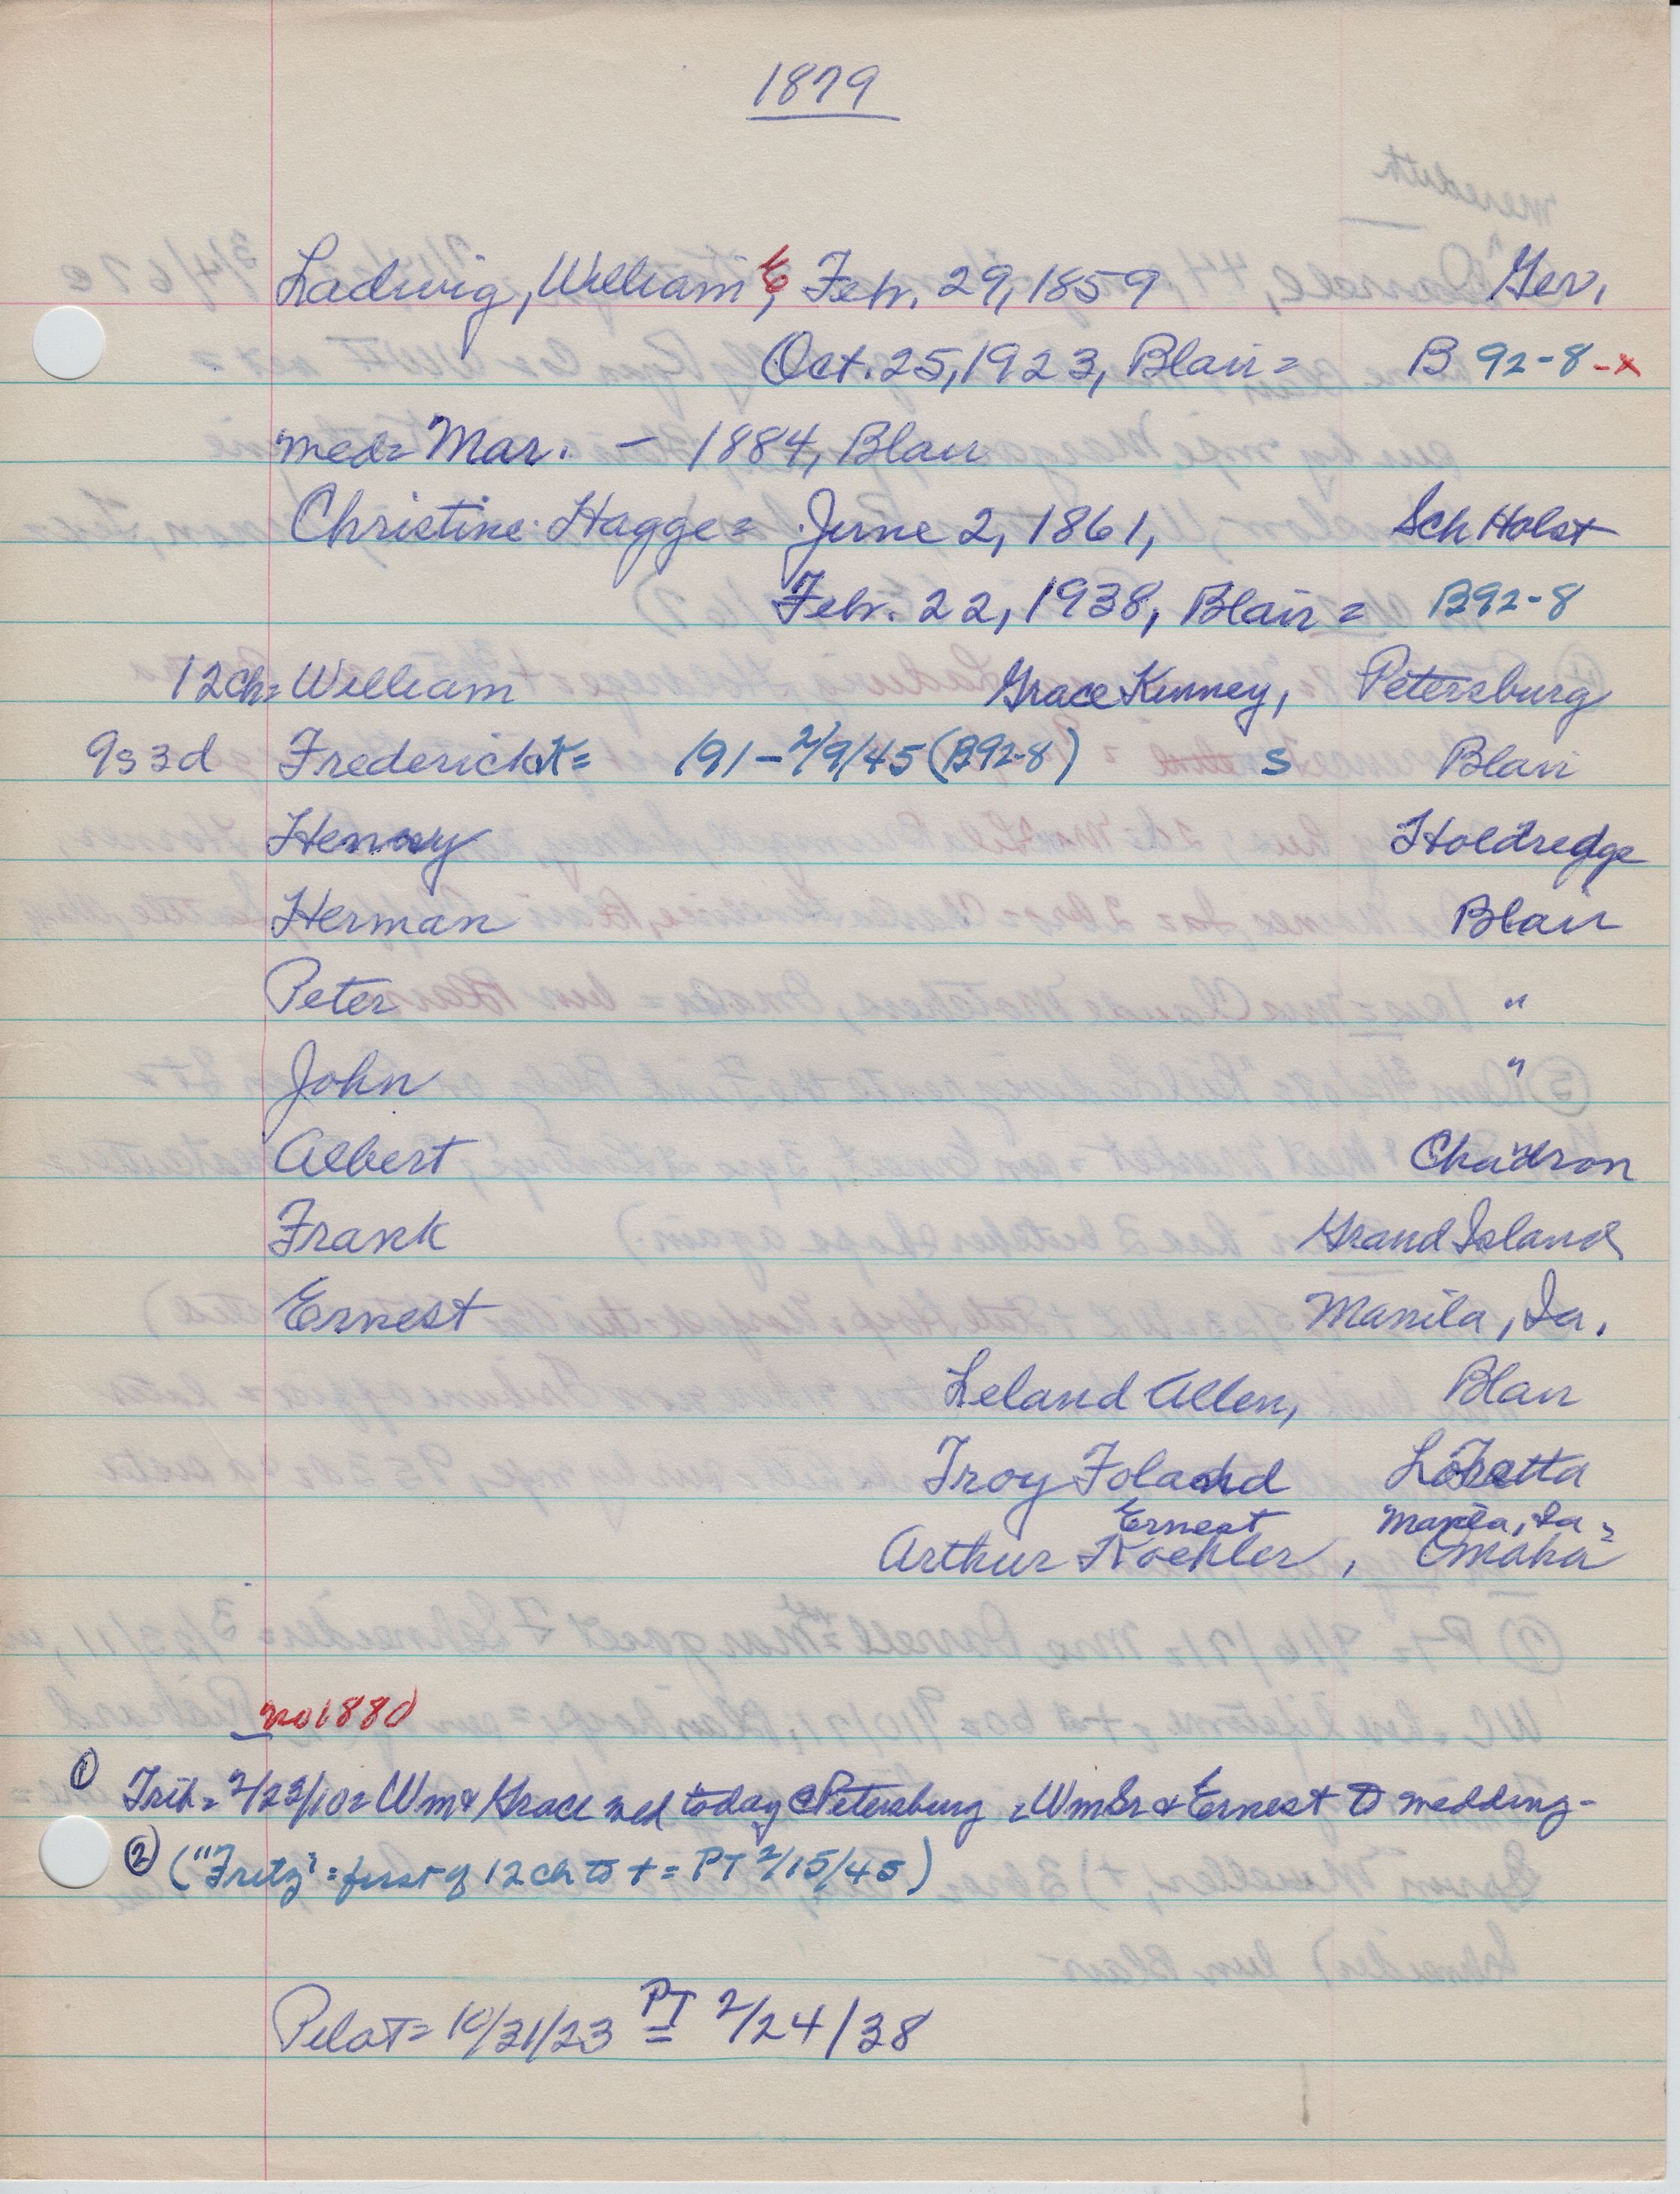 1879
Ladwig, William E, Feb. 29, 1859 Ger.
Oct. 25, 1923, Blair = B 92-8-x
med= Mar. - 1884, Blair
Christine Hagge = June 2, 1861, Sch Holst
Feb. 22, 1938, Blair = B92-8
12ch= William Grace Kinney, Petersburg
9s 3d Frederick K= 191 - 2/9/45 (B92-8) S Blair
Henry Holdredge
Herman Blair
Peter "
John "
Albert Chadron
Frank Grand Island
Ernest Manila, Ia.
Leland Allen, Blair
Troy Foland Loretta
Ernest Manila, Ia.
Arthur Koehler, Omaha
no 1880
① Trib= 2/23/10= Wm & Grace med today @ Petersburg = Wm Sr & Ernest to wedding-
② ("Fritz" = first of 12 ch to + = PT 2/15/45)
Pilot= 10/31/23 PT = 2/24/38